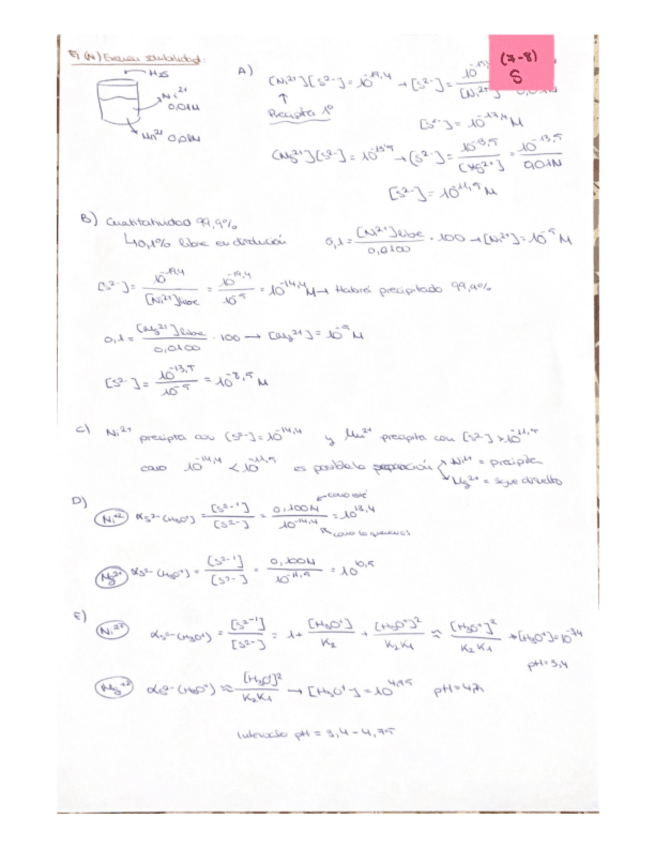 Ej (N) Examen solubilidad:
(7-8)
S
H₂S
Ni²⁺
0,01M
Mn²⁺ 0,01M
A) [Ni²⁺][S²⁻] = 10^-19,4 → [S²⁻] =
Precipita 1º
[S²⁻] = 10^-17,4 M
[Mg²⁺][S²⁻] = 10^-13,5 → [S²⁻] = 10^-13,5 / [Mg²⁺] = 10^-13,5 / 0,01M
[S²⁻] = 10^-11,5 M
B) Cuantitatividad 99,9%
↳ 0,1% libre en disolución 0,1 = [Ni²⁺]libre / 0,0100 · 100 → [Ni²⁺] = 10^-5 M
[S²⁻] = 10^-19,4 / [Ni²⁺]libre = 10^-19,4 / 10^-5 = 10^-14,4 M → Habrá precipitado 99,9%
0,1 = [Mg²⁺]libre / 0,0100 · 100 → [Mg²⁺] = 10^-5 M
[S²⁻] = 10^-13,5 / 10^-5 = 10^-8,5 M
C) Ni²⁺ precipita con [S²⁻] = 10^-14,4 y Mn²⁺ precipita con [S²⁻] > 10^-11,5
como 10^-14,4 < 10^-11,5 es posible la separación Ni²⁺ = precipita
Mg²⁺ = sigue disuelto
D)
como esté
Ni²⁺ αS²⁻(H₃O⁺) = [S²⁻'] / [S²⁻] = 0,100M / 10^-14,4 = 10^13,4
como lo queremos
Mg²⁺ αS²⁻(H₃O⁺) = [S²⁻'] / [S²⁻] = 0,100M / 10^-11,5 = 10^10,5
E)
Ni²⁺ αS²⁻(H₃O⁺) = [S²⁻'] / [S²⁻] = 1 + [H₃O⁺] / K₂ + [H₃O⁺]² / K₂K₁ ≈ [H₃O⁺]² / K₂K₁ → [H₃O⁺] = 10^-3,4
pH = 3,4
Mg⁺² αS²⁻(H₃O⁺) ≈ [H₃O⁺]² / K₂K₁ → [H₃O⁺] = 10^4,75
Intervalo pH = 3,4 - 4,75